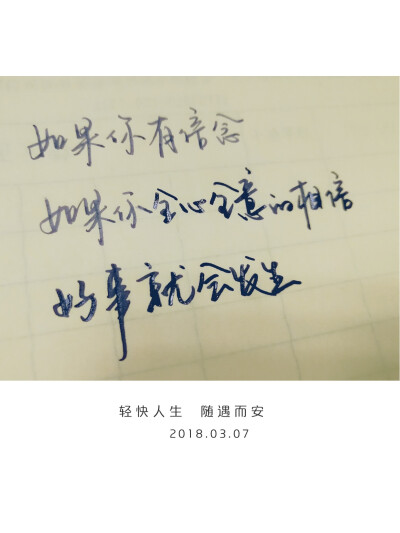 如果你有信念
如果你全心全意的相信
好事就会发生
轻快人生 随遇而安
2018.03.07